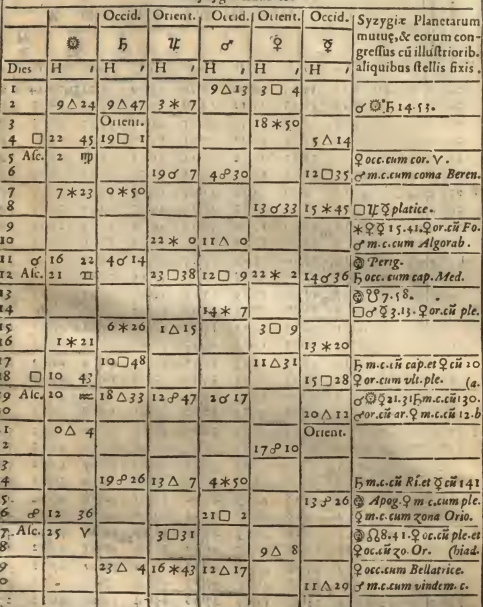 Occid. Orient. Occid. Orient. Occid. Syzygiæ Planetarum
mutuę, & eorum con-
gressus cũ illustriorib.
☉ ♄ ♃ ♂ ♀ ☿
Dies H ′ H ′ H ′ H ′ H ′ H ′ aliquibus stellis fixis.
1 9△13 3□ 4
2 9△24 9△47 3✶ 7 ☌☉♄ 14.53.
3 Orient. 18✶50
4 □ 22 45 19□ 1 5△14
5 Asc. 2 ♍ ♀ occ. cum cor. ♈.
6 19☌ 7 4☍30 12□35 ♂ m.c. cum coma Beren.
7 7✶23 0✶50
8 13☌33 15✶45 □♃☿ platice.
9 ✶♀☿ 15.41. ♀ or. cũ Fo.
10 22✶ 0 11△ 0 ♂ m.c. cum Algorab.
11 ☌ 16 22 4☌14 Perig.
12 Asc. 21 ♊ 23□38 12□ 9 22✶ 2 14☌36 ♄ occ. cum cap. Med.
13 ☋ 7.58.
14 14✶ 7 □♂☿ 3.13. ♀ or. cũ ple.
15 6✶26 1△15 3□ 9
16 1✶21 13✶20
17 10□48 11△31 ♄ m.c. cũ cap. et ♀ cũ 20
18 □ 10 43 15□28 ♀ or. cum vlt. ple. (a.
19 Asc. 20 ♒ 18△33 12☍47 2☌17 ☌☉☿ 21.31 ♄ m.c. cũ 130.
20△12 ♂ or. cũ ar. ♀ m.c. cũ 12.b
1 0△ 4 Orient.
2 17☍10
3
4 19☍26 13△ 7 4✶50 ♄ m.c. cũ Ri. et ☿ cũ 141
5 13☍26 Apog. ♀ m c. cum ple.
6 ☍ 12 36 21□ 2 ☿ m.c. cum zona Orio.
7 Asc. 25 ♈ 3□31 ☊ 8.41. ♀ oc. cũ ple. et
8 9△ 8 ♀ oc. cũ zo. Or. (hiad.
9 23△ 4 16✶43 12△17 ♀ occ. cum Bellatrice.
11△29 ♂ m.c. cum vindem. c.